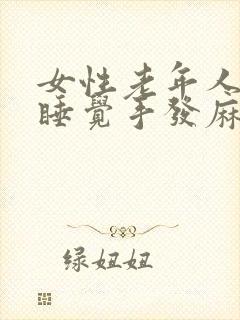 女性老年人
睡覺手發麻
绿妞妞